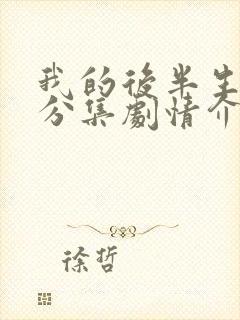 我的后半生
分集剧情介
徐哲